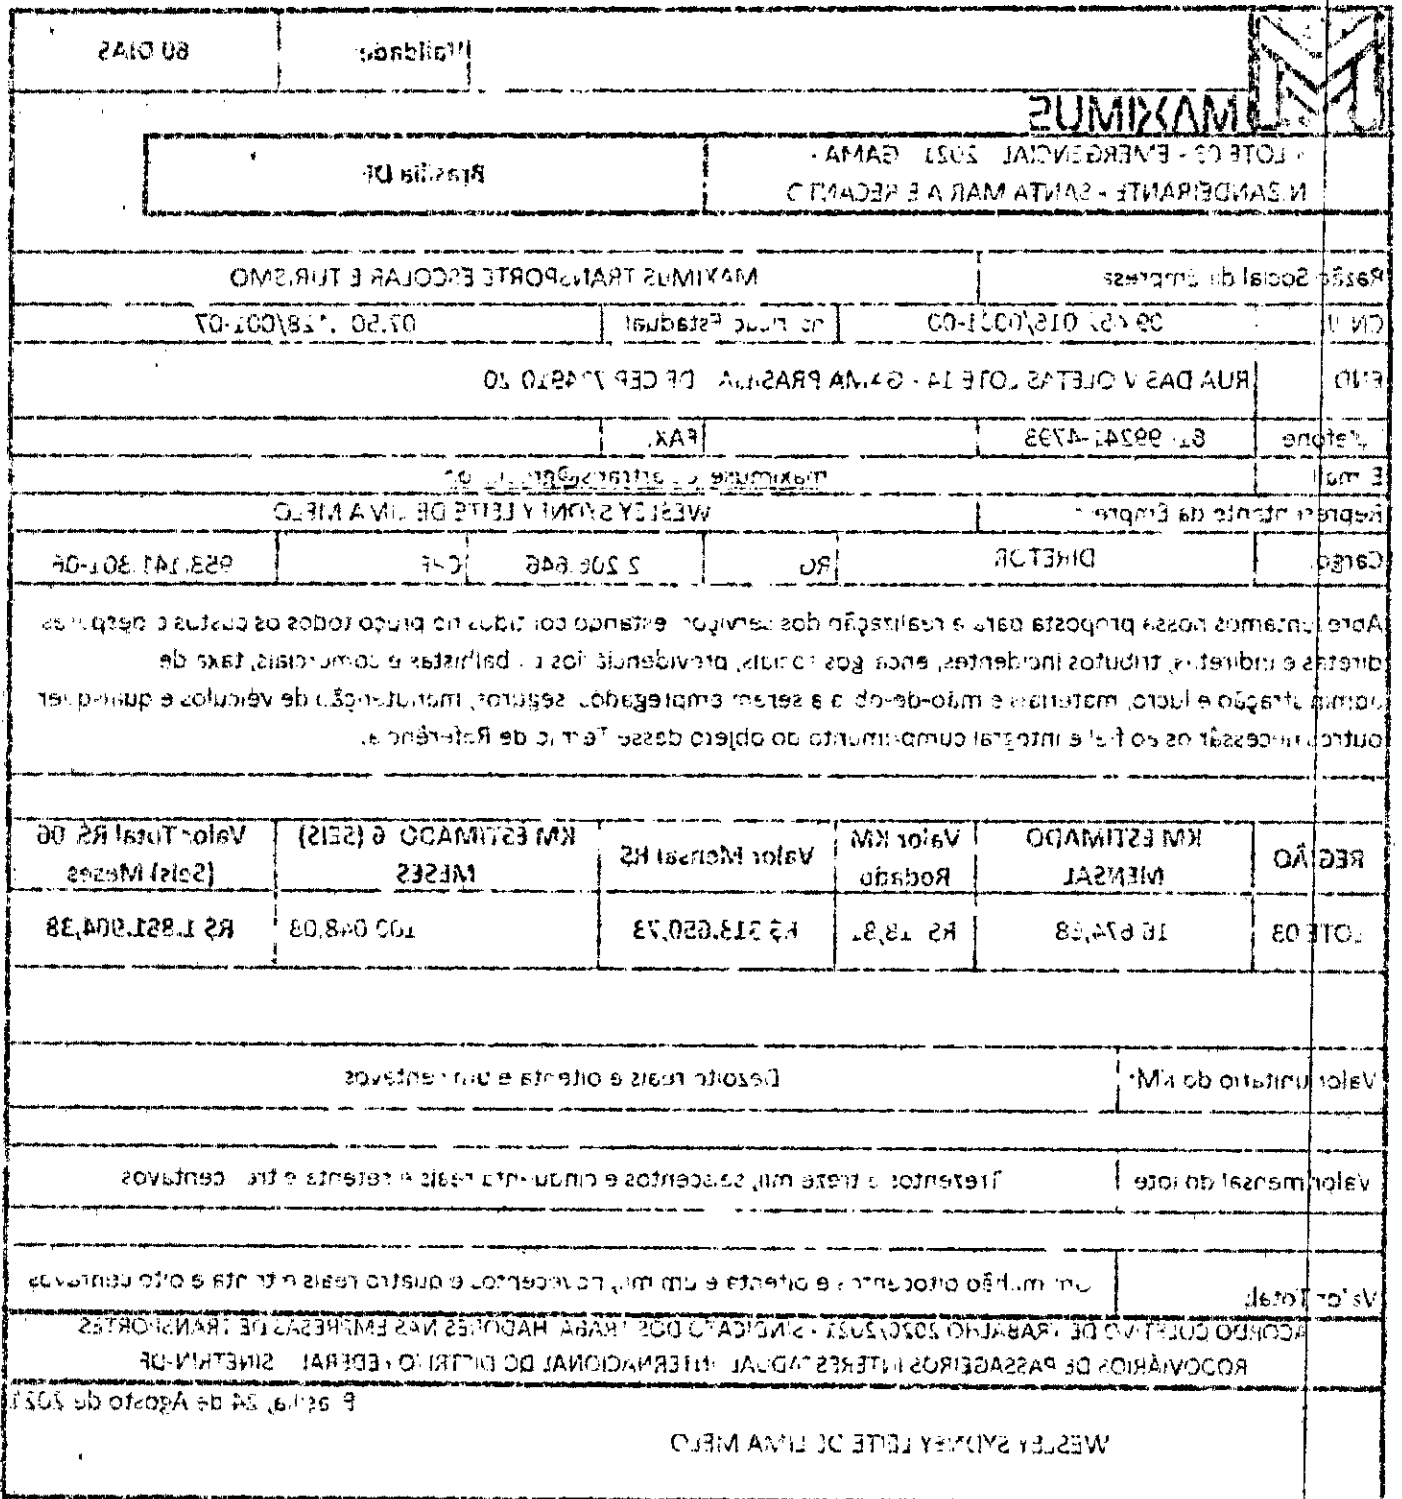 MAXIMUS
Validade: 60 DIAS
LOTE 03 - EMERGENCIAL 2021 GAMA -
N.BANDEIRANTE - SANTA MARIA E RECANTO
Brasília DF
Razão Social da Empresa MAXIMUS TRANSPORTE ESCOLAR E TURISMO
Estadual
RUA DAS VIOLETAS LOTE 14 - GAMA BRASILIA DF CEP
Telefone FAX.
E mail
Representante da Empresa WESLEY SYDNEY LEITE DE LIMA MELO
Cargo. DIRETOR RG CPF 953.141.301-06
Apresentamos nossa proposta para a realização dos serviços estando contidos no preço todos os custos e despesas
diretas e indiretas, tributos incidentes, encargos sociais, previdenciários trabalhistas e comerciais, taxa de
administração e lucro, materiais e mão-de-obra a serem empregados, seguros, manutenção de veículos e quaisquer
outros necessários ao fiel e integral cumprimento do objeto desse Termo de Referência.
REGIÃO KM ESTIMADO MENSAL Valor KM Rodado Valor Mensal R$ KM ESTIMADO 6 (SEIS) MESES Valor Total R$ 06 (Seis) Meses
LOTE 03 16 674,68 R$ 18,81 R$ 313.650,73 100 048,08 R$ 1.881.904,38
Valor unitario do KM: Dezoito reais e oitenta e um centavos
Valor mensal do lote Trezentos e treze mil, seiscentos e cinquenta reais e setenta e tres centavos
Valor Total: Um milhão oitocentos e oitenta e um mil, novecentos e quatro reais e trinta e oito centavos
ACORDO COLETIVO DE TRABALHO 2020/2021 - SINDICATO DOS TRABALHADORES NAS EMPRESAS DE TRANSPORTES
RODOVIÁRIOS DE PASSAGEIROS INTERESTADUAL INTERNACIONAL DO DISTRITO FEDERAL SINETRIN-DF
Brasília, 24 de Agosto de 2021
WESLEY SYDNEY LEITE DE LIMA MELO